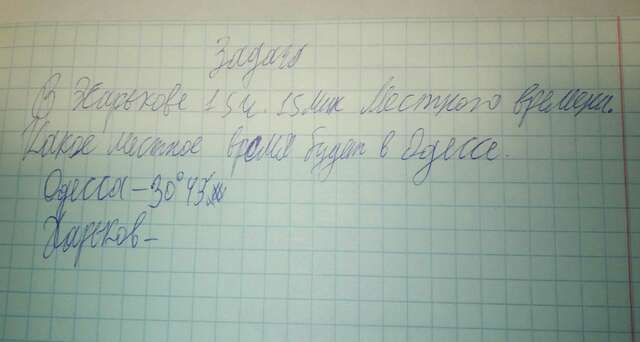 Задача
В Харькове 15ч. 15мин местного времени.
Какое местное время будет в Одессе.
Одесса – 30° 45'
Харьков –